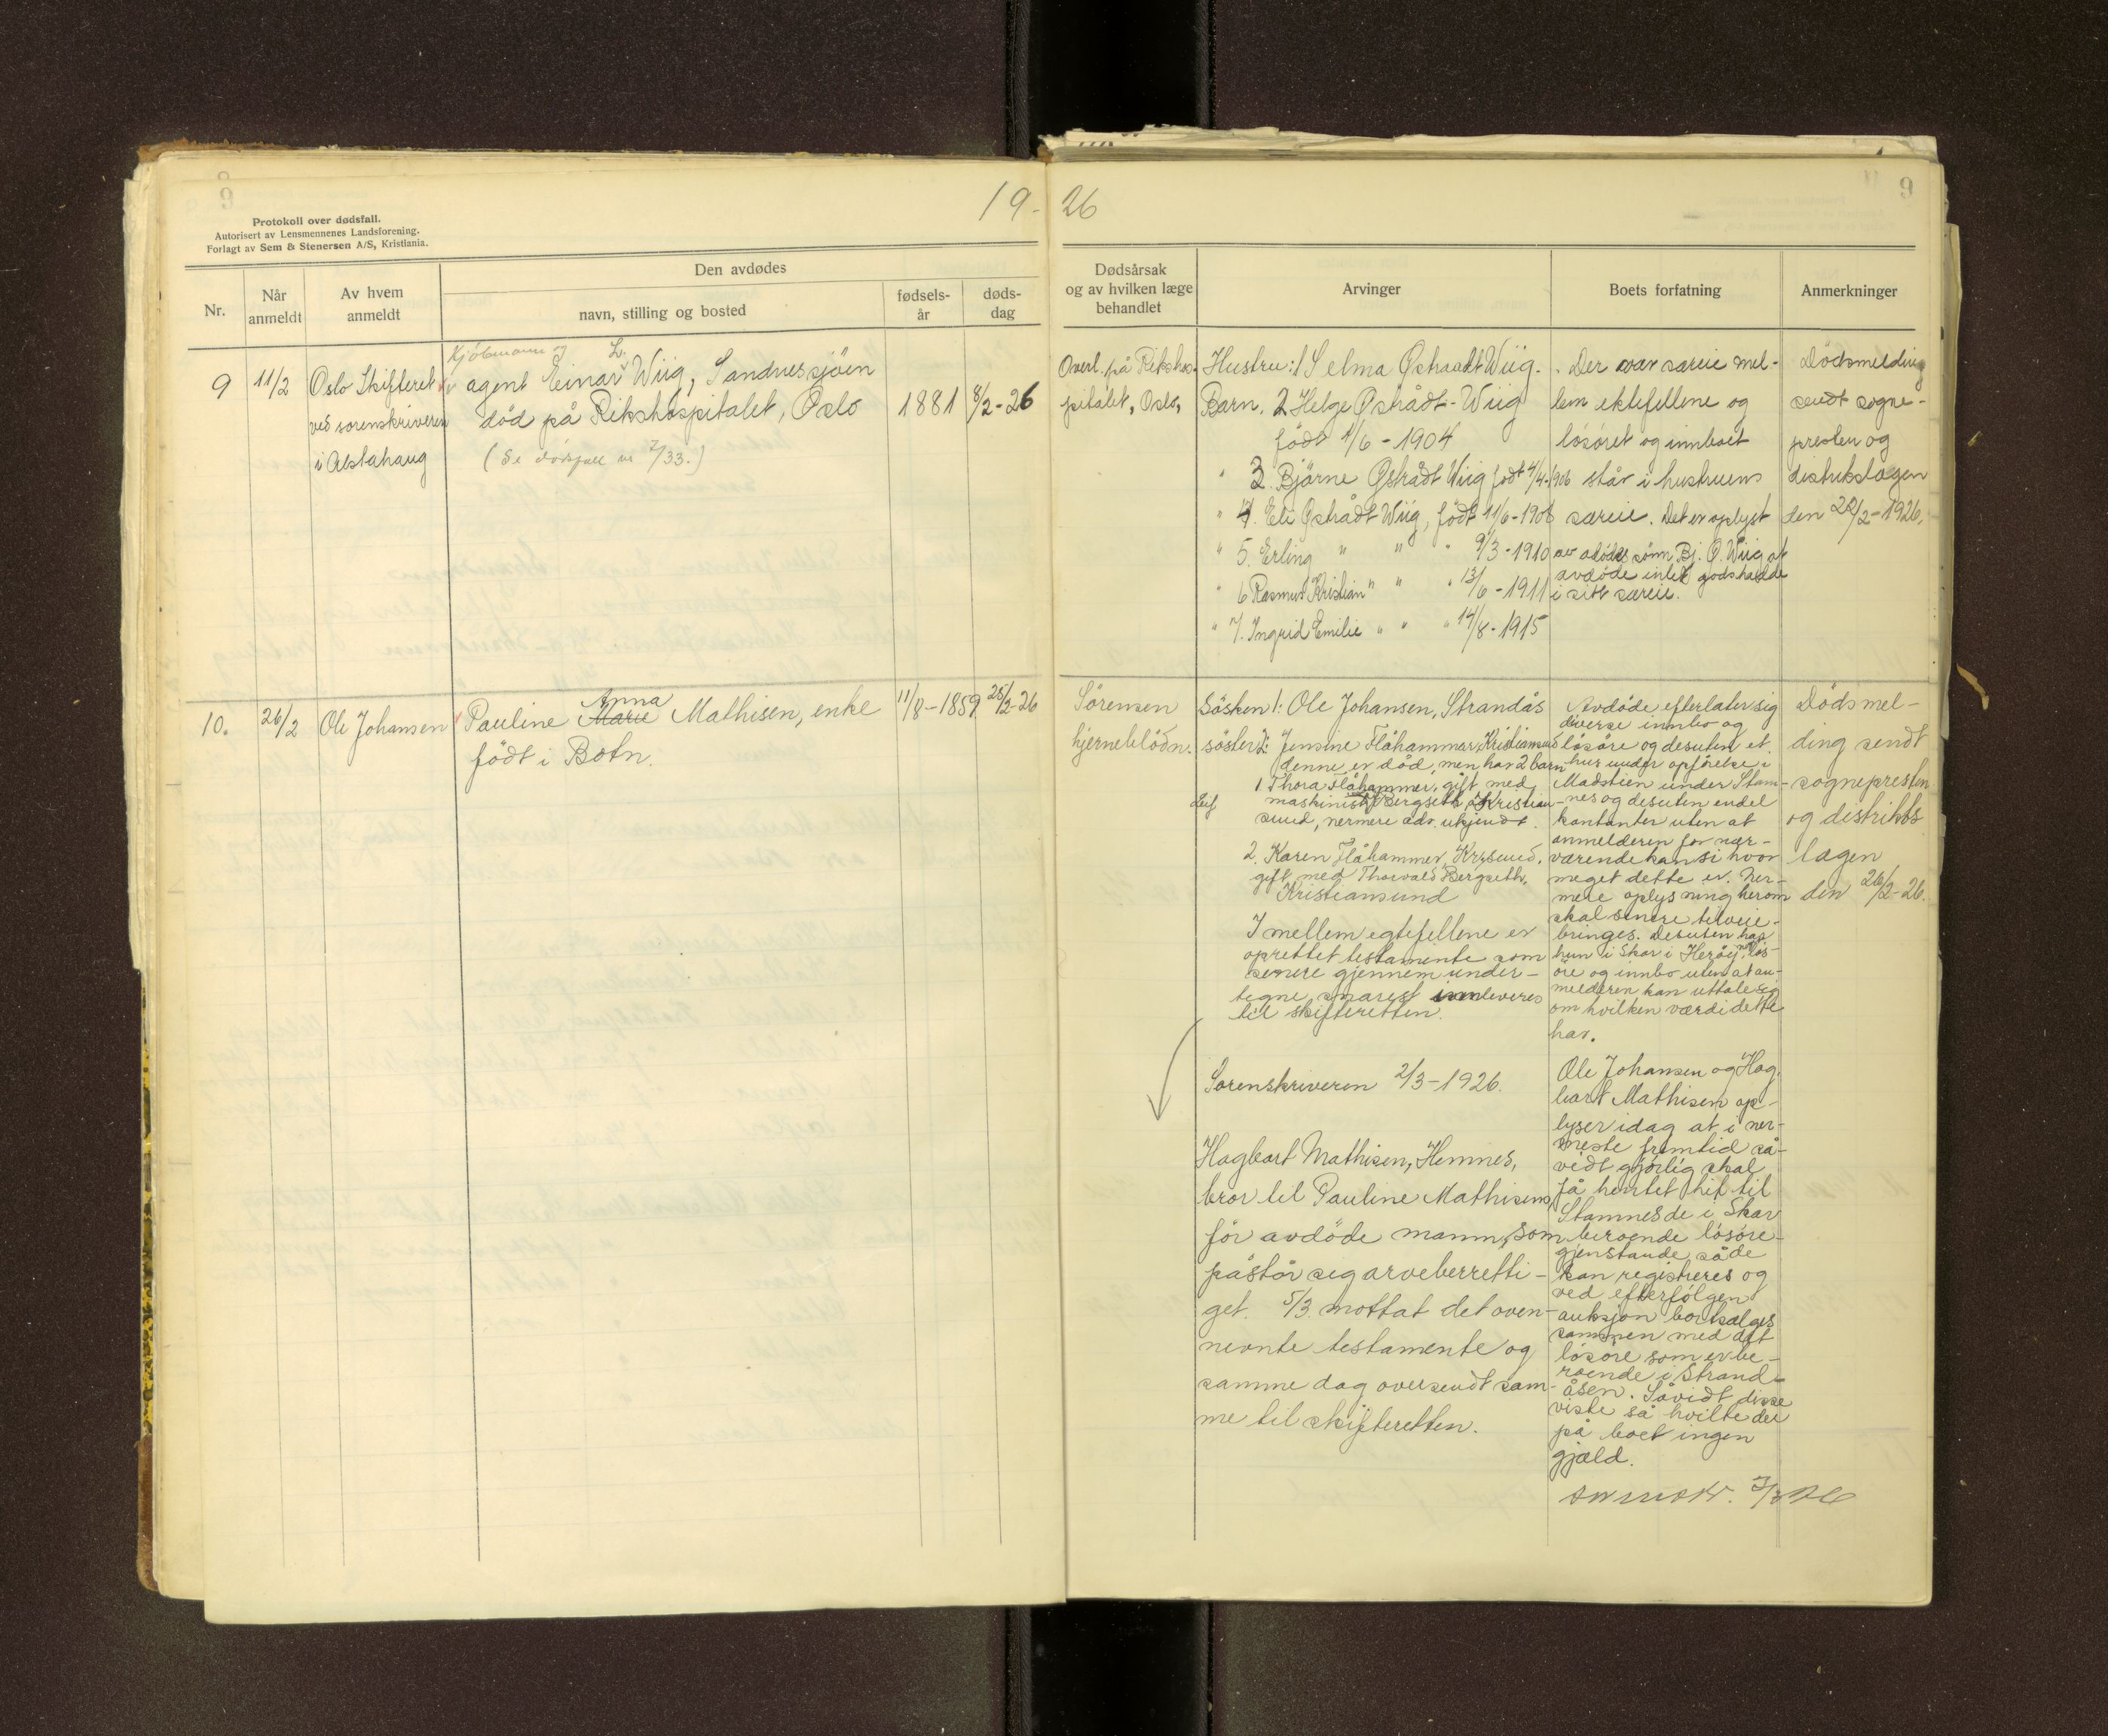 9
19-26
9
Protokoll over dødsfall.
Autorisert av Lensmennenes Landsforening.
Forlagt av Sem & Stenersen A/S, Kristiania.
Nr.
Når
anmeldt
Av hvem
anmeldt
Den avdødes
navn, stilling og bosted
fødsels-
år
døds-
dag
Dødsårsak
og av hvilken læge
behandlet
Arvinger
Boets forfatning
Anmerkninger
9
11/2
Oslo Skifteret
ved sorenskriveren
i Alstahaug
Kjöbmann og
agent Einar L. Wiig, Sandnessjöen
död på Rikshospitalet, Oslo
(Se dödsfall nr 7/33.)
1881
8/2-26
Overl. på Rikshos-
pitalet, Oslo,
Hustru: 1 Selma Østraadt Wiig.
Barn. 2 Helge Østrådt-Wiig
födt 4/6-1904
" 3. Bjärne Østrådt Wiig födt 4/4-1906
" 4. Eli Østrådt Wiig, födt 11/6-1908
" 5. Erling " " " 9/3-1910
" 6 Rasmus Kristian " " " 13/6-1911
" 7. Ingrid Emilie " " " 14/8-1915
Der var særeie mel-
lem ektefellene og
lösöret og innboet
står i hustruens
særeie. Det er oplyst
av avdödes sönn Bj. Ö. Wiig at
avdöde intet gods hadde
i sitt særeie.
Dödsmelding
sendt sogne-
presten og
distrikslægen
den 20/2-1926.
10.
26/2
Ole Johansen
Pauline Marie Anna Mathisen, enke
födt i Botn.
11/8-1859
25/2-26
Sörensen
hjerneblödn.
Sösken 1: Ole Johansen, Strandås
söster 2: Jensine Flåhammer, Kristiansund
denne er död, men har 2 barn
1 Thora Flåhammer, gift med
maskinist Leif Bergseth, Kristian-
sund, nermere adr. ukjendt.
2. Karen Flåhammer, Kr.sund,
gift med Thorvald Bergseth,
Kristiansund
I mellem egtefellene er
oprettet testamente som
senere gjennem under-
tegne snarest innleveres
til skifteretten.
Sorenskriveren 2/3-1926.
Hagbart Mathisen, Hemnes,
bror til Pauline Mathisens
för avdöde mann, som
påstår seg arveberretti-
get. 5/3 mottat det oven-
nevnte testamente og
samme dag oversendt sam-
me til skifteretten.
Avdöde efterlater sig
diverse innbo og
lösöre og desuten et
hus under opförelse i
Madstien under Stam-
nes og desuten endel
kontanter uten at
anmelderen for nær-
værende kan si hvor
meget dette er. Ner-
mere oplysning herom
skal senere tilveie-
bringes. Desuten har
hun i Skar i Heröy noe lös-
öre og innbo uten at an-
melderen kan uttale sig
om hvilken værdi dette
har.
Ole Johansen og Hag-
bart Mathisen op-
lyser idag at i ner-
meste fremtid så-
vidt gjörlig skal
få hentet hit til
Stamnes de i Skar
beroende lösöre-
gjenstande så de
kan registreres og
ved efterfölgen
auksjon bortsælges
sammen med det
lösöre som er be-
roende i Strand-
åsen. Såvidt disse
viste så hvilte der
på boet ingen
gjæld.
Dödsmel-
ding sendt
sognepresten
og distrikts
lægen
den 26/2-26.